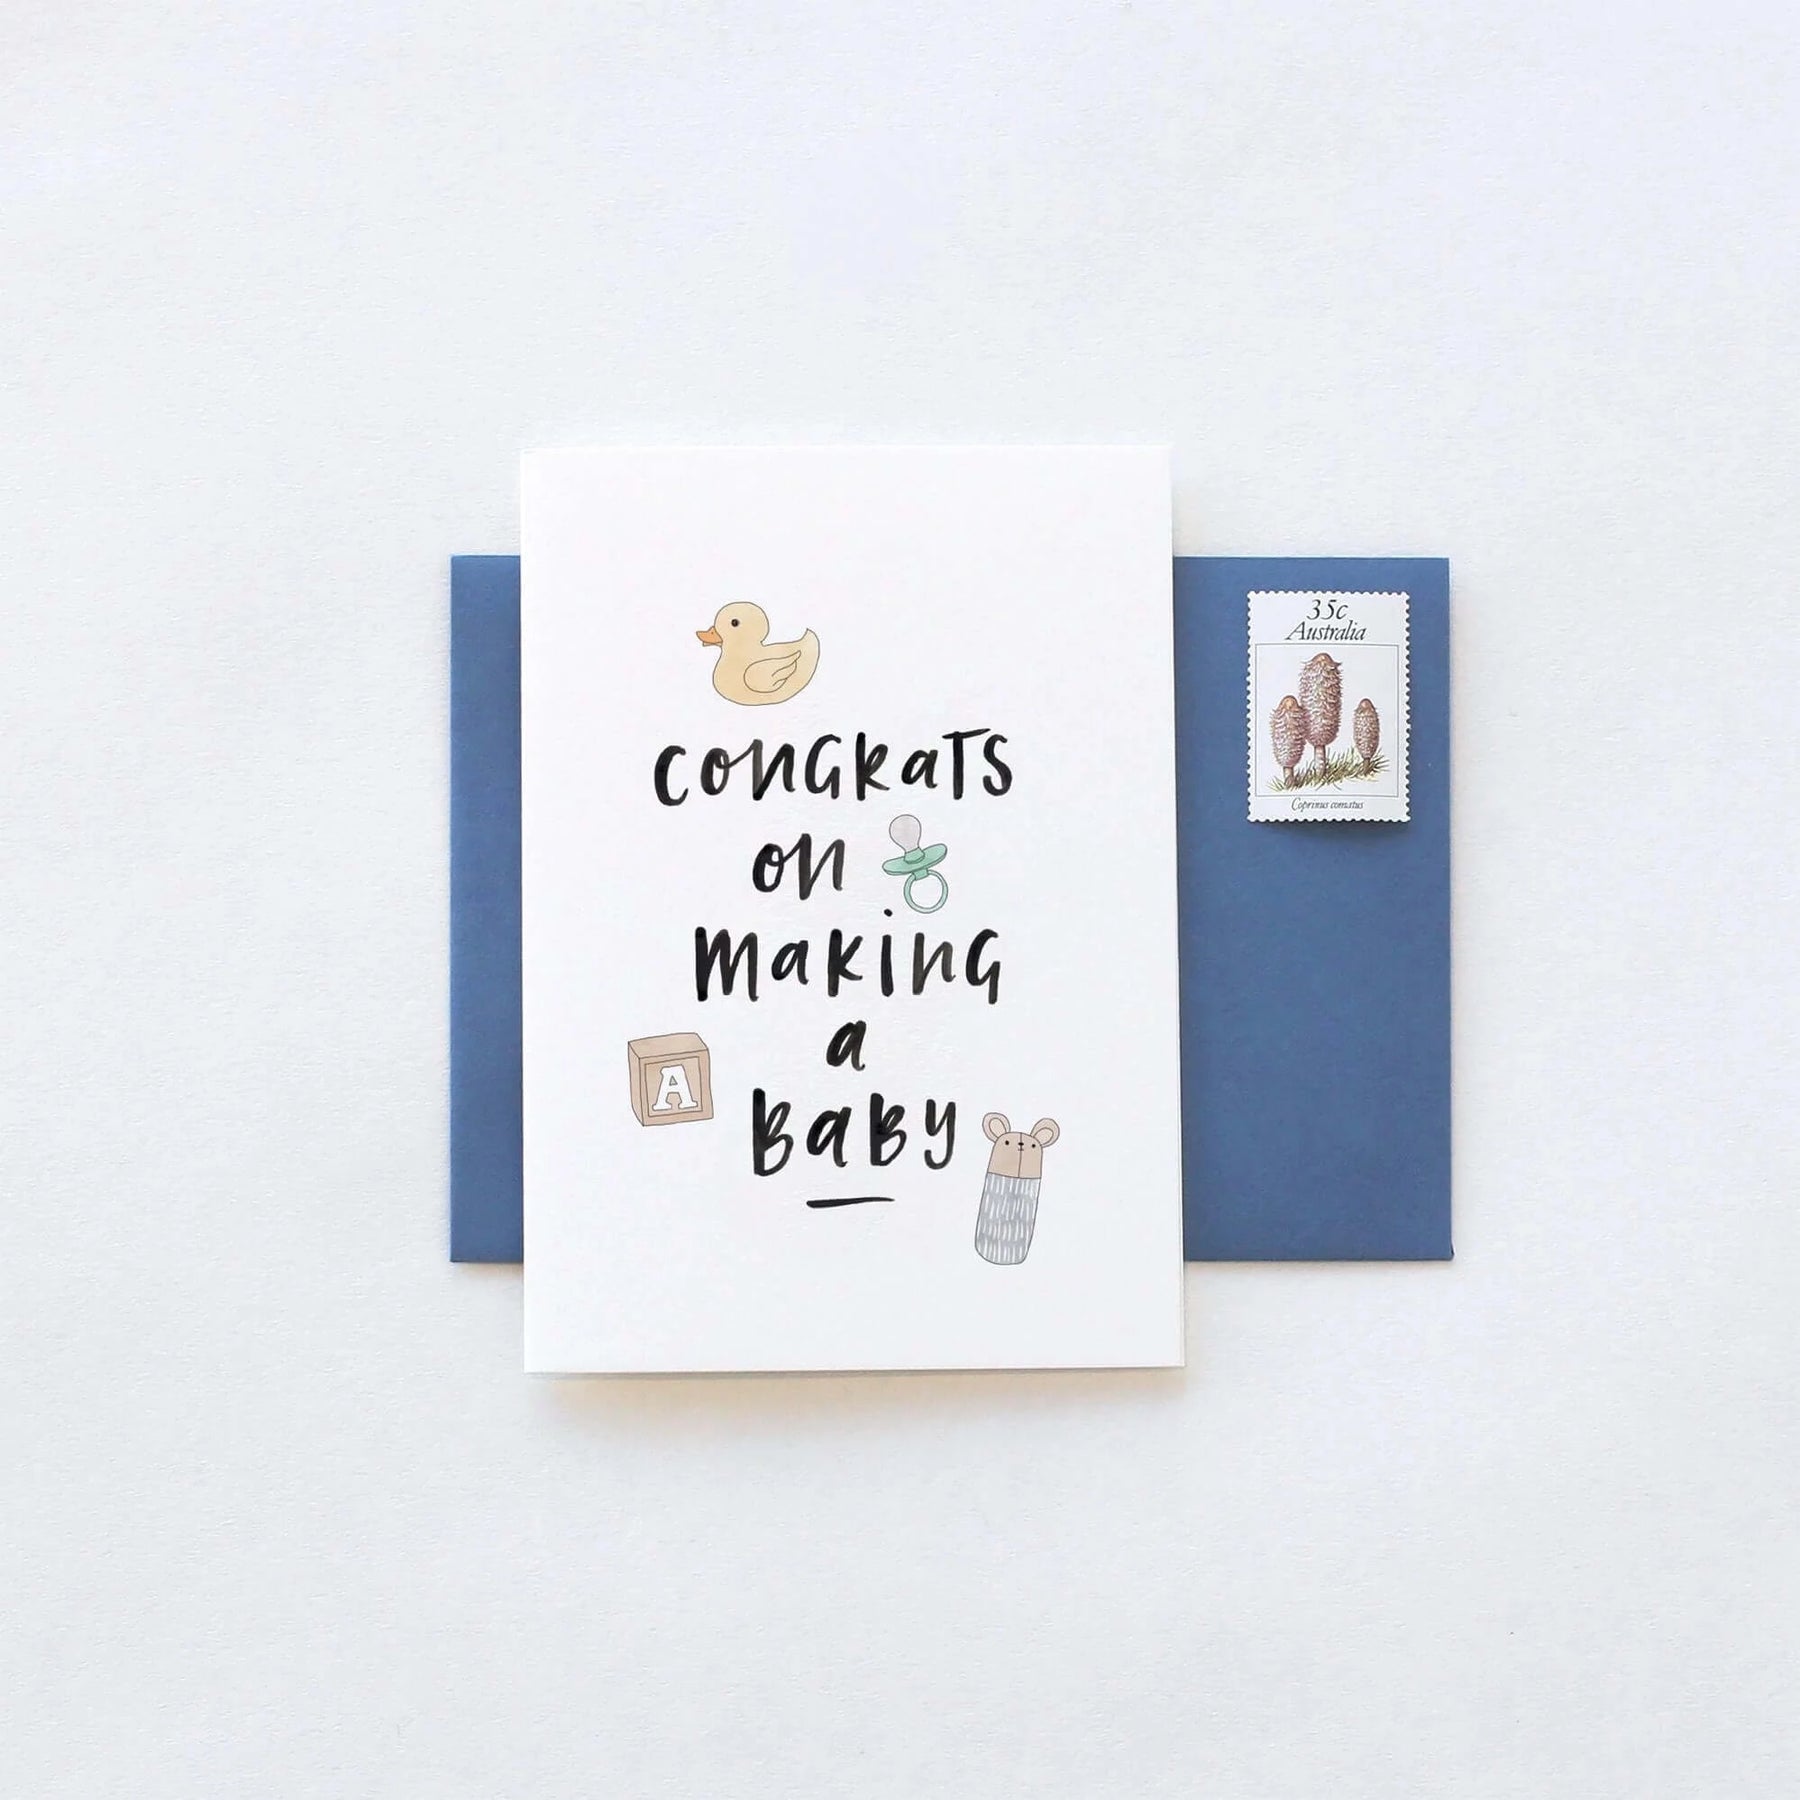 congrats
on
making
a
baby
A
35c
Australia
Coprinus comatus